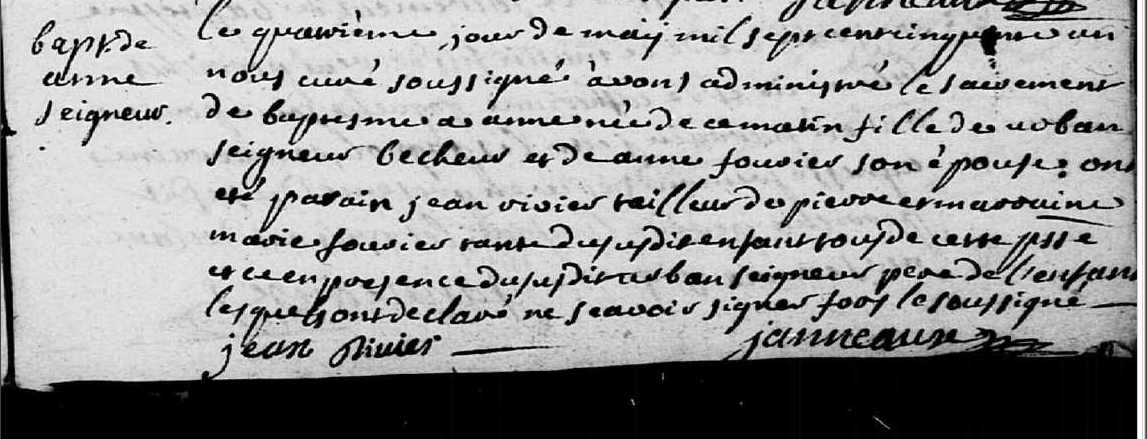 bapt. de
anne
seigneur.
le quatrième jour de maij mil sept cent cinquante un
nous curé soussigné avons administré le sacrement
de baptesme a anne née de ce matin fille de urban
seigneur becheur et de anne fourier son épouse, ont
eté parain jean rivier tailleur de pierre et marraine
marie fourier tante du susdit enfant tous de cette psse
et ce en presence du susdit urban seigneur pere de l'enfant
lesquels ont declaré ne scavoir signer fors le soussigné
jean Rivier janneaux